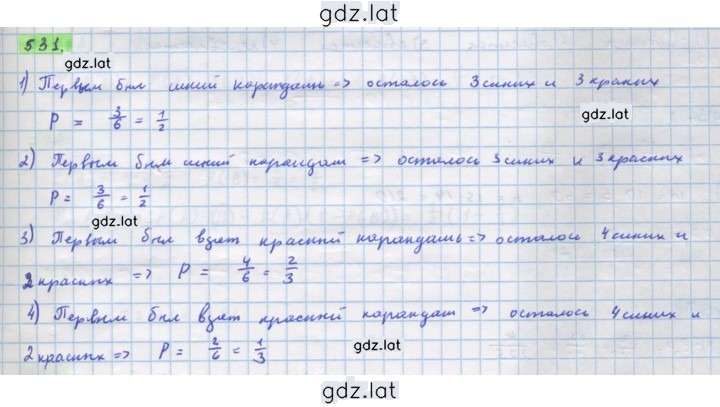 gdz.lat
531.
gdz.lat
1) Первым был синий карандашь => осталось 3 синих и 3 краних
gdz.lat
P = 3/6 = 1/2
2) Первым был синий карандаш => осталось 3 синих и 3 красных
P = 3/6 = 1/2
gdz.lat
3) Первым был взят красный карандашь => осталось 4 синих и
2 красных => P = 4/6 = 2/3
4) Первым был взят красный карандаш => осталось 4 синих и
2 красных => P = 2/6 = 1/3
gdz.lat
gdz.lat